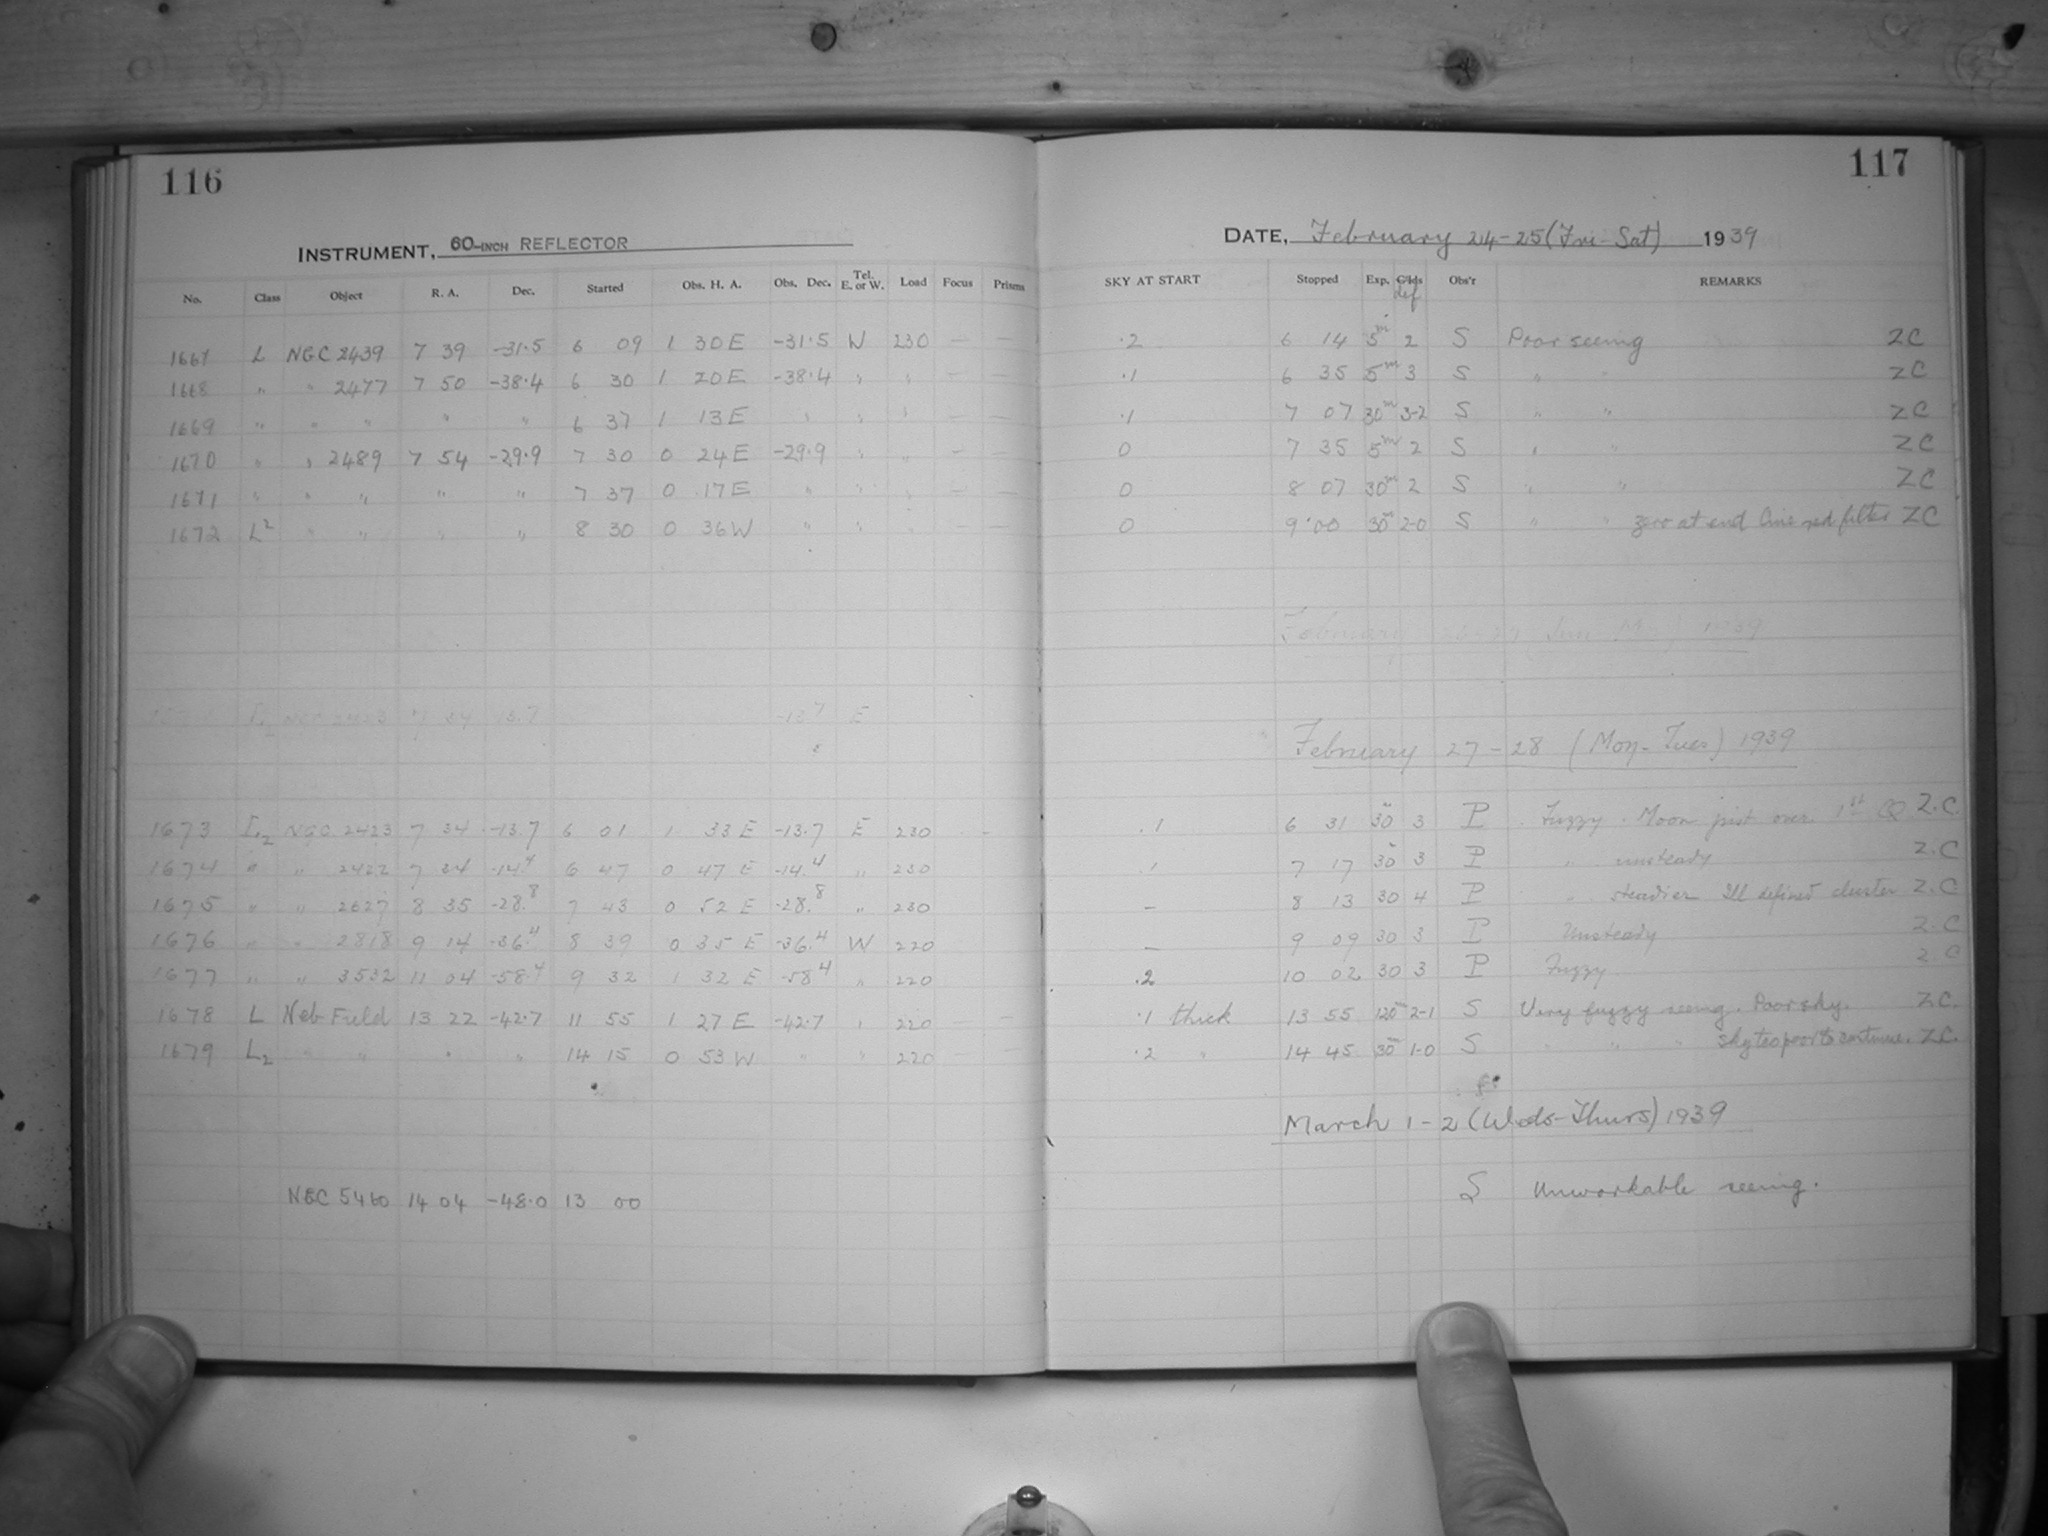 116
INSTRUMENT, 60-INCH REFLECTOR
No. Class Object R. A. Dec. Started Obs. H. A. Obs. Dec. Tel. E. or W. Load Focus Prisms
1667 L NGC 2439 7 39 -31.5 6 09 1 30 E -31.5 W 230 — —
1668 " " 2477 7 50 -38.4 6 30 1 20 E -38.4 " " — —
1669 " " " " " 6 37 1 13 E " " " — —
1670 " " 2489 7 54 -29.9 7 30 0 24 E -29.9 " " — —
1671 " " " " " 7 37 0 17 E " " " — —
1672 L2 " " " " 8 30 0 36 W " " " — —
2423 7 34 13.7 -13.7 E
1673 L2 NGC 2423 7 34 -13.7 6 01 1 33 E -13.7 E 230 -
1674 " " 2422 7 34 -14.4 6 47 0 47 E -14.4 " 230
1675 " " 2627 8 35 -28.8 7 43 0 52 E -28.8 " 230
1676 " " 2818 9 14 -36.4 8 39 0 35 E -36.4 W 220
1677 " " 3532 11 04 -58.4 9 32 1 32 E -58.4 " 220
1678 L Neb Field 13 22 -42.7 11 55 1 27 E -42.7 " 220 —
1679 L2 " " " " 14 15 0 53 W " " 220 — —
NGC 5460 14 04 -48.0 13 00
117
DATE, February 24-25 (Fri-Sat) 1939
SKY AT START Stopped Exp. G'ds def Obs'r REMARKS
.2 6 14 5m 2 S Poor seeing ZC
.1 6 35 5m 3 S " " ZC
.1 7 07 30m 3-2 S " " ZC
0 7 35 5m 2 S " " ZC
0 8 07 30m 2 S " " ZC
0 9 00 30m 2-0 S " " zero at end Cine red filter ZC
February 1939
February 27-28 (Mon-Tues) 1939
.1 6 31 30m 3 P Fuzzy. Moon just over 1st Q. Z.C.
.1 7 17 30m 3 P " unsteady Z.C
— 8 13 30 4 P " steadier Ill defined cluster Z.C
— 9 09 30 3 P Unsteady Z.C
.2 10 02 30 3 P Fuzzy Z.C
.1 thick 13 55 120m 2-1 S Very fuzzy seeing. Poor sky. Z.C.
.2 " 14 45 30m 1-0 S " " " Sky too poor to continue. Z.C.
March 1-2 (Weds-Thurs) 1939
S Unworkable seeing.